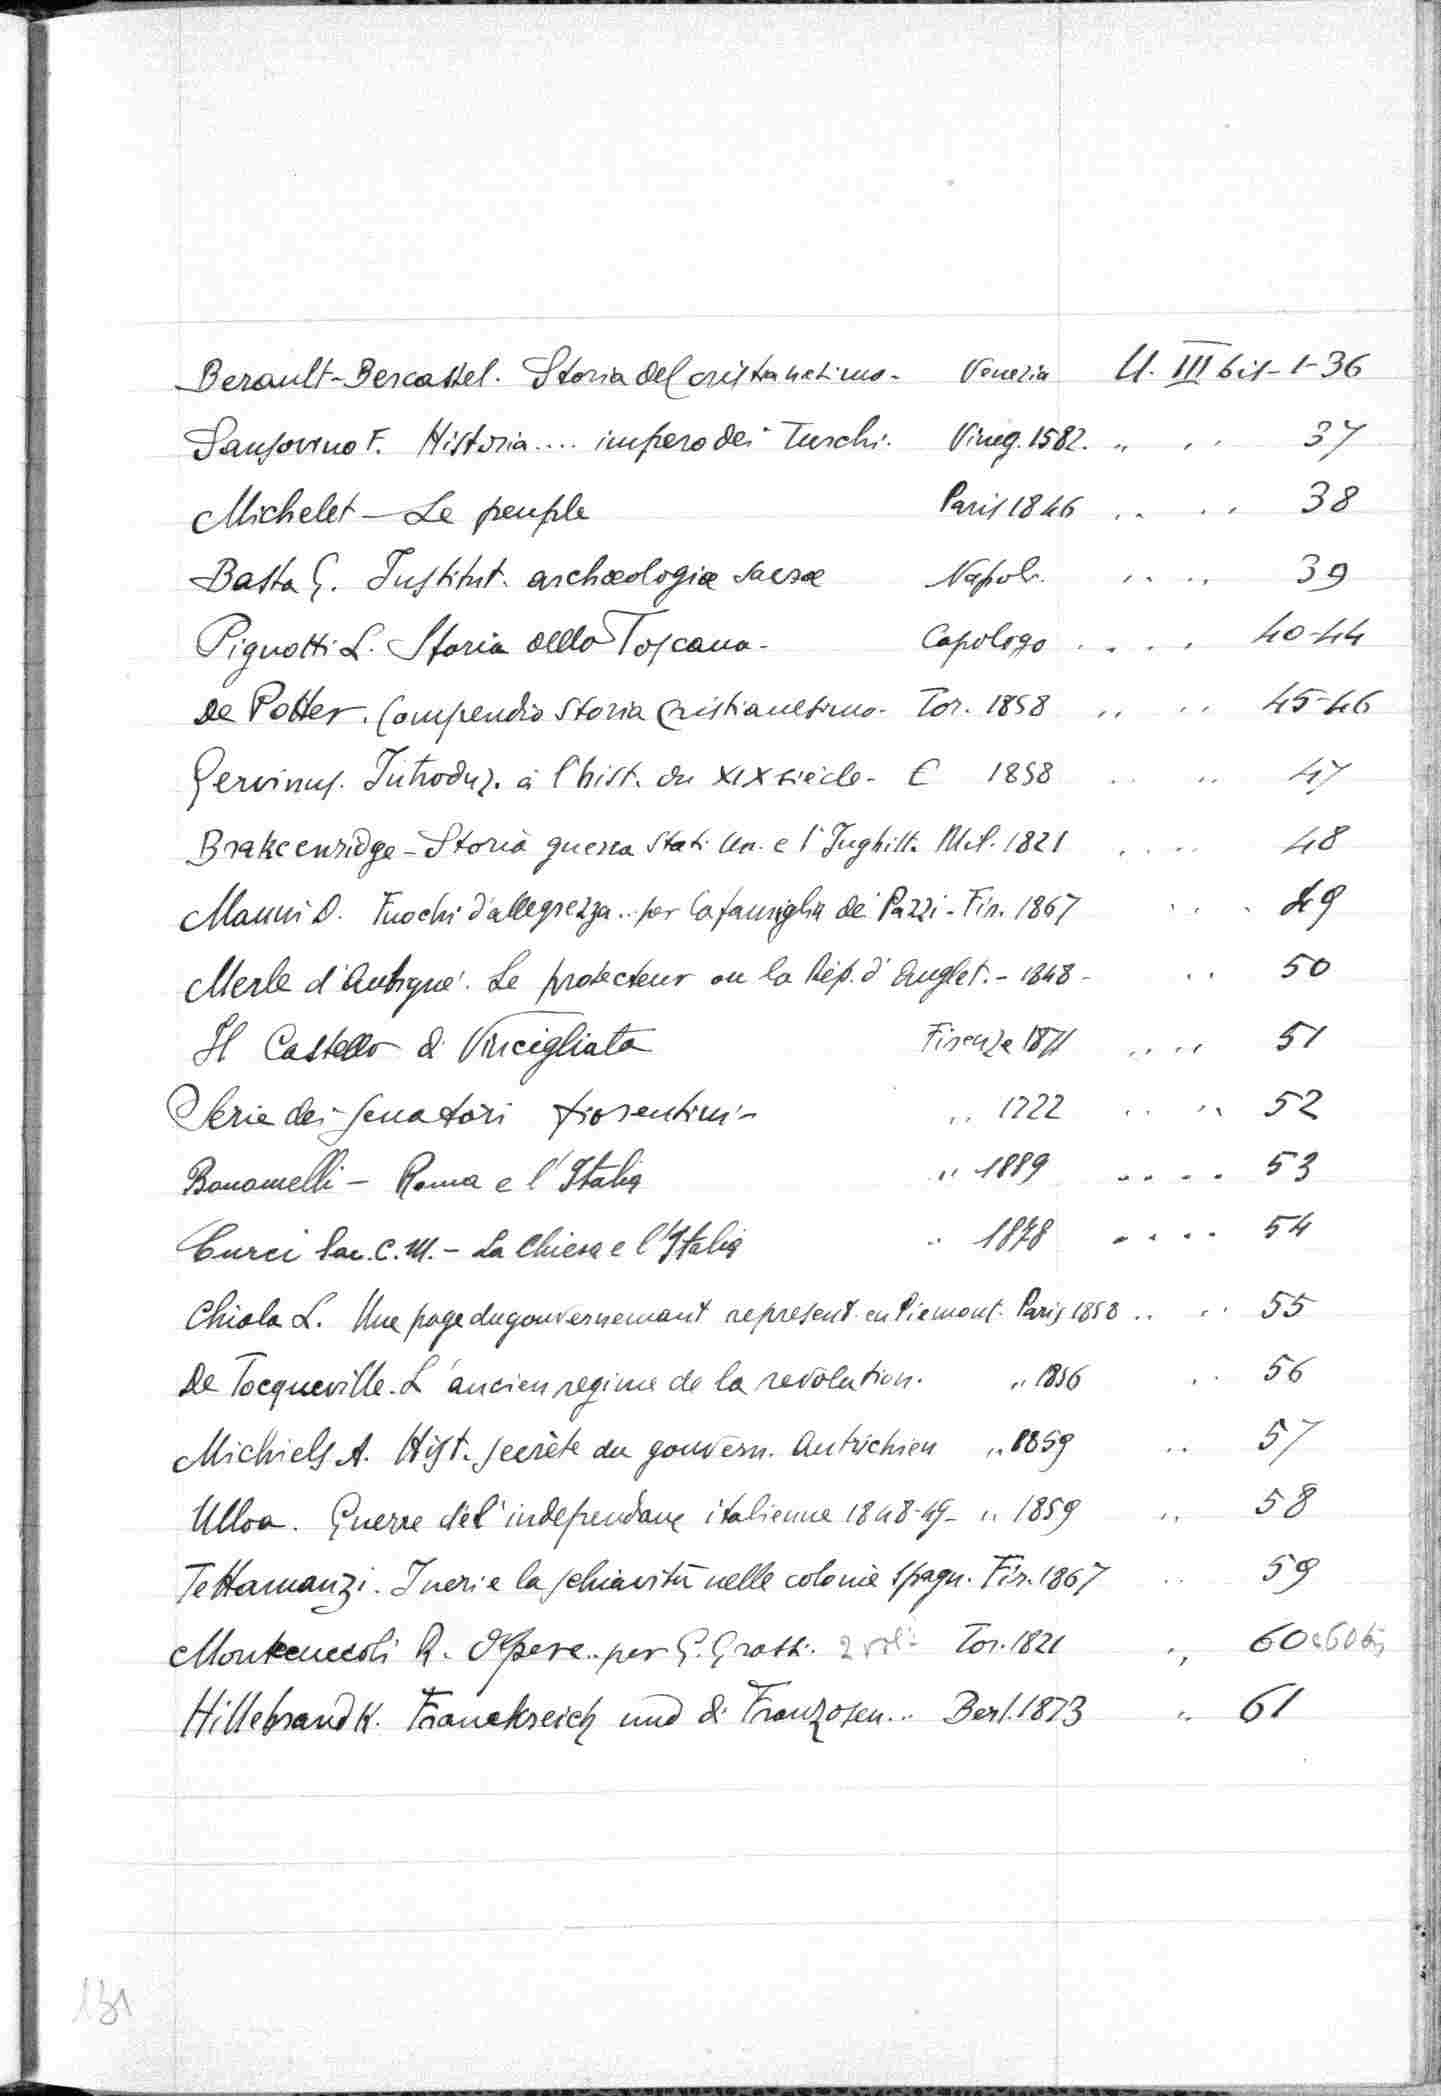 Berault-Bercastel. Storia del cristianesimo - Venezia U. III bis - 1-36
Sansovino F. Historia .... impero dei Turchi. Vineg. 1582. „ „ 37
Michelet - Le peuple Paris 1846 „ „ 38
Basta G. Institut. archæologiæ sacræ Napoli. „ „ 39
Pignotti L. Storia della Toscana - Capolago „ „ 40-44
De Potter. Compendio storia cristianesimo - Tor. 1858 „ „ 45-46
Gervinus. Introduz. à l'hist. du XIX siècle - 1858 „ „ 47
Brakcenridge - Storia guerra Stati Un. e l'Inghilt. Mil. 1821 „ „ 48
Manni D. Fuochi d'allegrezza .. per la famiglia de' Pazzi - Fir. 1867 „ „ 49
Merle d'Aubigné. Le protecteur ou la Rép. d'Anglet. - 1848 - „ 50
Il Castello di Vincigliata Firenze 1871 „ „ 51
Serie dei senatori fiorentini - „ 1722 „ „ 52
Bonomelli - Roma e l'Italia „ 1889 „ „ 53
Curci Sac. C. M. - La Chiesa e l'Italia „ 1878 „ „ 54
Chiala L. Une page du gouvernemant represent. en Piemont. Paris 1858 „ „ 55
De Tocqueville. L'ancien regime de la revolution. „ 1856 „ 56
Michiels A. Hist. secrète du gouvern. Autrichien „ 1859 „ 57
Ulloa. Guerre de l'independance italienne 1848-49 - „ 1859 „ 58
Tettamanzi. I neri e la schiavitù nelle colonie spagn. Fir. 1867 „ 59
Montecuccoli R. Opere .. per G. Grassi. 2 vol. Tor. 1821 „ 60 e 60 bis
Hillebrand K. Franckreich und di Franzosen .. Berl. 1873 „ 61
131